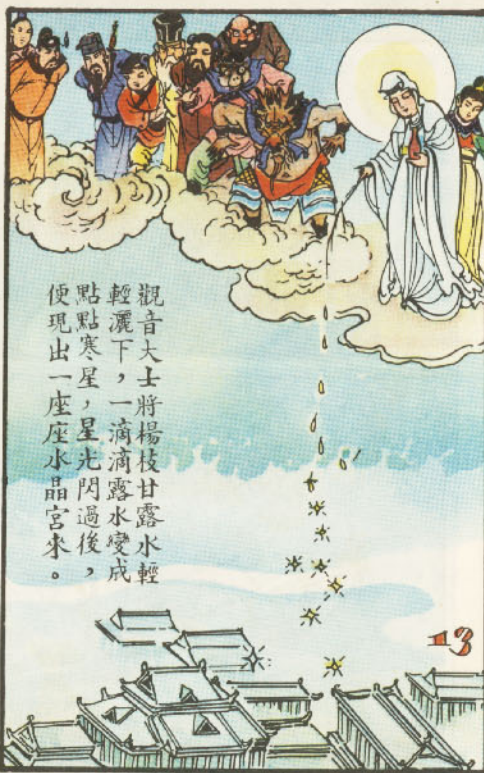 觀音大士將楊枝甘露水輕
輕灑下，一滴滴露水變成
點點寒星，星光閃過後，
便現出一座座水晶宮來。
13